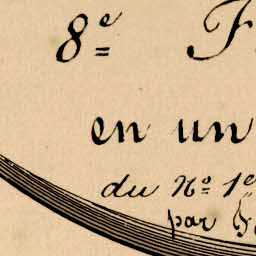 8e F
en un
du No. 1er
par